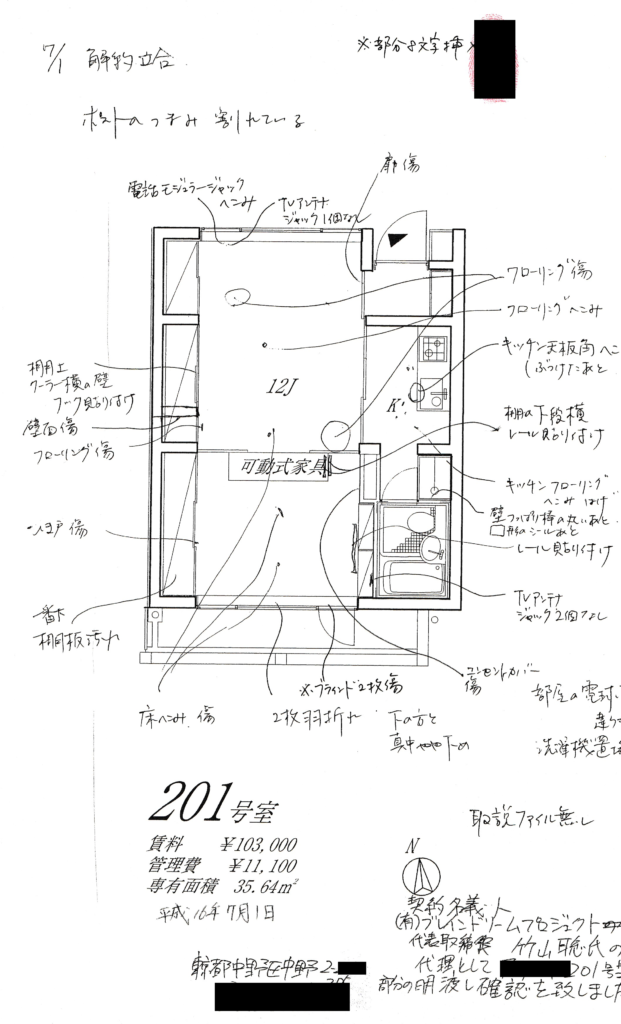 7/1 解約立合
※部分8文字挿入
ポストのつまみ割れている
扉傷
電話モジュラージャック
へこみ
TVアンテナ
ジャック1個なし
フローリング傷
フローリングへこみ
キッチン天板角へこ
(ぶつけたあと
棚用土
クーラー横の壁
フック貼り付け
12J
K
棚の下段横
レール貼り付け
壁面傷
フローリング傷
可動式家具
キッチンフローリング
へこみ はげ
壁つっぱり棒の丸いあと
□形のシールあと
レール貼り付け
戸傷
TVアンテナ
ジャック2個なし
一番下
棚板汚れ
コンセントカバー
傷
※ブラインド2枚傷
床へこみ、傷
2枚羽折れ
下の方と
真中やや下め
部屋の電球
違う
洗濯機置場
201号室
取説ファイル無し
賃料 ¥103,000
管理費 ¥11,100
専有面積 35.64m²
平成16年7月1日
N
契約名義人
(有)ブレインドリームプロジェクト
代表取締役 竹山聡氏の
代理として 201号室
部分の明渡し確認を致しました
東京都中野区中野2-